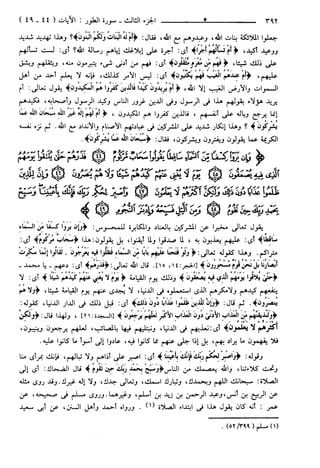 ٣٩٢ الجزء الثالث - سورة الطور : الآيات (٤٤ - ٤٩)
جعلوا الملائكة بنات الله، وعبدوهم مع الله، فقال: ﴿أم له البنات ولكم البنون﴾؟ وهذا تهديد شديد
ووعيد أكيد، ﴿أم تسألهم أجراً﴾ أي: أجرة على إبلاغك إياهم رسالة الله؟ أي: لست تسألهم
على ذلك شيئا، ﴿فهم من مغرم مثقلون﴾ أي: فهم من أدنى شيء يتبرمون منه، ويثقلهم ويشق
عليهم، ﴿أم عندهم الغيب فهم يكتبون﴾ أي: ليس الأمر كذلك، فإنه لا يعلم أحد من أهل
السماوات والأرض الغيب إلا الله، ﴿أم يريدون كيدا فالذين كفروا هم المكيدون﴾ يقول تعالى: أم
يريد هؤلاء بقولهم هذا في الرسول وفي الدين غرور الناس وكيد الرسول وأصحابه، فكيدهم
إنما يرجع وباله على أنفسهم، فالذين كفروا هم المكيدون، ﴿أم لهم إله غير الله سبحان الله عما
يشركون﴾؟ وهذا إنكار شديد على المشركين في عبادتهم الأصنام والأنداد مع الله. ثم نزه نفسه
الكريمة عما يقولون ويفترون ويشركون، فقال: ﴿سبحان الله عما يشركون﴾.
يقول تعالى مخبرا عن المشركين بالعناد والمكابرة للمحسوس: ﴿وإن يروا كسفا من السماء
ساقطا﴾ أي: عليهم يعذبون به، لما صدقوا ولما أيقنوا، بل يقولون: هذا ﴿سحاب مركوم﴾ أي:
متراكم. وهذا كقوله تعالى: ﴿ولو فتحنا عليهم باباً من السماء فظلوا فيه يعرجون لقالوا إنما سكرت
أبصارنا بل نحن قوم مسحورون﴾ [الحجر: ١٤، ١٥]. قال الله تعالى: ﴿فذرهم﴾ أي: دعهم - يا محمد -
﴿حتى يلاقوا يومهم الذي فيه يصعقون﴾ وذلك يوم القيامة ﴿يوم لا يغني عنهم كيدهم شيئا﴾ أي: لا
ينفعهم كيدهم ولا مكرهم الذي استعملوه في الدنيا، لا يجدي عنهم يوم القيامة شيئا، ﴿ولا هم
ينصرون﴾. ثم قال: ﴿وإن للذين ظلموا عذابا دون ذلك﴾ أي: قبل ذلك في الدار الدنيا، كقوله:
﴿ولنذيقنهم من العذاب الأدنى دون العذاب الأكبر لعلهم يرجعون﴾ [السجدة: ٢١]، ولهذا قال: ﴿ولكن
أكثرهم لا يعلمون﴾ أي: نعذبهم في الدنيا، ونبتليهم فيها بالمصائب، لعلهم يرجعون وينيبون،
فلا يفهمون ما يراد بهم، بل إذا جلي عنهم مما كانوا فيه، عادوا إلى أسوأ ما كانوا عليه.
وقوله: ﴿واصبر لحكم ربك فإنك بأعيننا﴾ أي: اصبر على أذاهم ولا تبالهم، فإنك بمرأى منا
وتحت كلاءتنا، والله يعصمك من الناس ﴿وسبح بحمد ربك حين تقوم﴾ قال الضحاك: أي إلى
الصلاة: سبحانك اللهم وبحمدك، وتبارك اسمك، وتعالى جدك، ولا إله غيرك. وقد روي مثله
عن الربيع بن أنس، وعبد الرحمن بن زيد بن أسلم، وغيرهما. وروى مسلم في صحيحه، عن
عمر: أنه كان يقول هذا في ابتداء الصلاة (١). ورواه أحمد وأهل السنن، عن أبي سعيد
(١) مسلم (٥٢/٣٩٩).